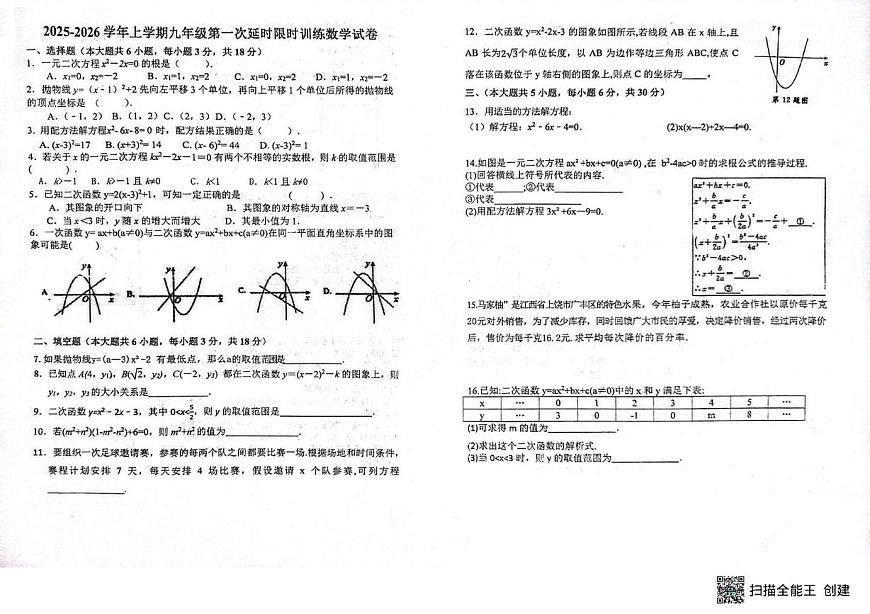 2025-2026 学年上学期九年级第一次延时限时训练数学试卷
一、选择题（本大题共 6 小题，每小题 3 分，共 18 分）
1．一元二次方程 x²－2x=0 的根是（　　）.
A．x₁=0，x₂=－2　　B．x₁=1，x₂=2　　C．x₁=0，x₂=2　　D．x₁=1，x₂=－2
2．抛物线 y=（x﹣1）²+2 先向左平移 3 个单位，再向上平移 1 个单位后所得的抛物线
的顶点坐标是（　　）.
A．（﹣1，2） B.（1，2）C.（2，3）D.（﹣2，3）
3．用配方法解方程x²- 6x- 8= 0 时，配方结果正确的是（　　）.
A. (x-3)²=17　　B. (x+3)²= 14　　C. (x- 6)²= 44　　D. (x-3)²= 1
4．若关于 x 的一元二次方程 kx²－2x－1＝0 有两个不相等的实数根，则 k 的取值范围是
（　　）.
A．k>－1　B．k>－1 且 k≠0　　C．k<1　　D．k<1 且 k≠0
5．已知二次函数 y=2(x-3)²+1，可知一定正确的是（　　）.
A．其图象的开口向下　　B．其图象的对称轴为直线 x＝－3
C．当 x＜3 时，y 随 x 的增大而增大　　D．其最小值为 1.
6．一次函数 y= ax+b(a≠0)与二次函数 y=ax²+bx+c(a≠0)在同一平面直角坐标系中的图
象可能是(　　)
A. y O x B. y O x C. y O x D. y O x
二、填空题（本大题共 6 小题，每小题 3 分，共 18 分）
7. 如果抛物线y=（a—3）x²﹣2 有最低点，那么a的取值范围是________.
8．已知点 A(4，y₁)，B(√2，y₂)，C(－2，y₃) 都在二次函数 y=(x－2)²－k 的图象上，则
y₁，y₂，y₃ 的大小关系是________.
9．二次函数 y=x²﹣2x﹣3，其中 0<x<5/2，则 y 的取值范围是________.
10．若(m²+n²)(1-m²-n²)+6=0，则 m²+n² 的值为________.
11．要组织一次足球邀请赛，参赛的每两个队之间都要比赛一场.根据场地和时间条件，
赛程计划安排 7 天，每天安排 4 场比赛，假设邀请 x 个队参赛,可列方程
________.
12．二次函数 y=x²-2x-3 的图象如图所示,若线段 AB 在 x 轴上,且
AB 长为2√3个单位长度，以 AB 为边作等边三角形 ABC,使点 C
落在该函数位于 y 轴右侧的图象上,则点 C 的坐标为____。
y O x
第 12 题图
三、（本大题共 5 小题，每小题 6 分，共 30 分）
13．用适当的方法解方程:
（1）解方程：x²﹣6x﹣4=0.　　(2)x(x—2)+2x—4=0.
14.如图是一元二次方程 ax² +bx+c=0(a≠0) ,在 b²-4ac>0 时的求根公式的推导过程.
(1)回答横线上符号所代表的内容.
①代表______;②代表________
③代表________
(2)用配方法解方程 3x² +6x—9=0.
ax²+bx+c=0.
x²+b/a x=-c/a.
x²+b/a x+(b/2a)²=-c/a+ ① .
(x+b/2a)²=b²-4ac/4a².
∵b²-4ac>0,
∴x+b/2a= ② .
∴x= ③ .
15.马家柚”是江西省上饶市广丰区的特色水果，今年柚子成熟，农业合作社以原价每千克
20元对外销售，为了减少库存，同时回馈广大市民的厚爱，决定降价销售，经过两次降价
后，售价为每千克16.2元.求平均每次降价的百分率.
16.已知:二次函数 y=ax²+bx+c(a≠0)中的 x 和 y 满足下表:
x … 0 1 2 3 4 5 …
y … 3 0 -1 0 m 8 …
(1)可求得 m 的值为________.
(2)求出这个二次函数的解析式.
(3)当 0<x<3 时，则 y 的取值范围为________.
扫描全能王 创建